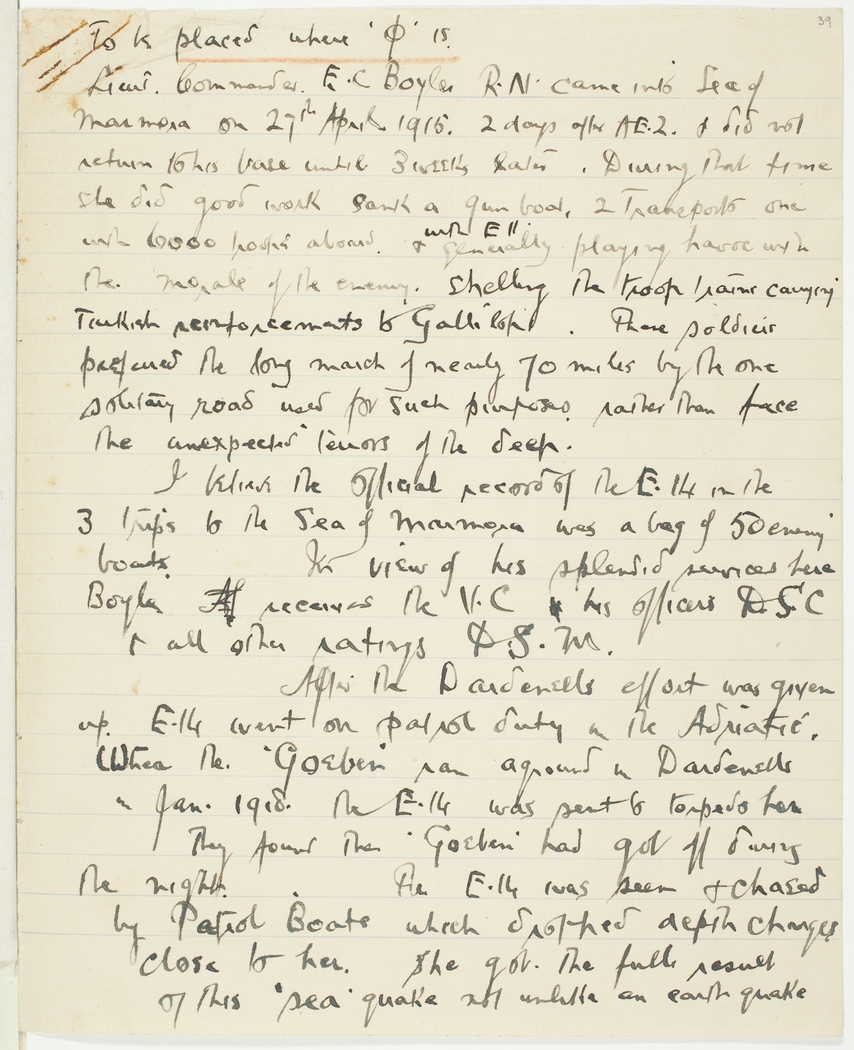 39
To be placed where 'φ' is.
Lieut. Commander. E.C Boyle R.N. came into Sea of
Marmora on 27th April 1915. 2 days after AE.2. & did not
return to his base until 3 weeks later. During that time
she did good work sank a gun boat, 2 Transports one
with 6000 troops aboard. & with E11 generally playing havoc with
the morale of the enemy. Shelling the troop trains carrying
Turkish reinforcements to Gallilopi. These soldiers
prefered the long march of nearly 70 miles by the one
solitary road used for such purposes rather than face
the unexpected terrors of the deep.
I believe the official record of the E.14 in the
3 trips to the Sea of Marmora was a bag of 50 enemy
boats. In view of his splendid services here
Boyle received the V.C & his officers D.S.C
& all other ratings D.S.M.
After the Dardenells effort was given
up. E.14 went on patrol duty in the Adriatic.
When the 'Goeben' ran aground in Dardenells
in Jan. 1918. the E.14 was sent to torpedo her
They found then 'Goeben' had got off during
the night. The E.14 was seen & chased
by Patrol Boats which dropped depth charges
close to her. She got the full result
of this 'sea' quake not unlike an earth quake